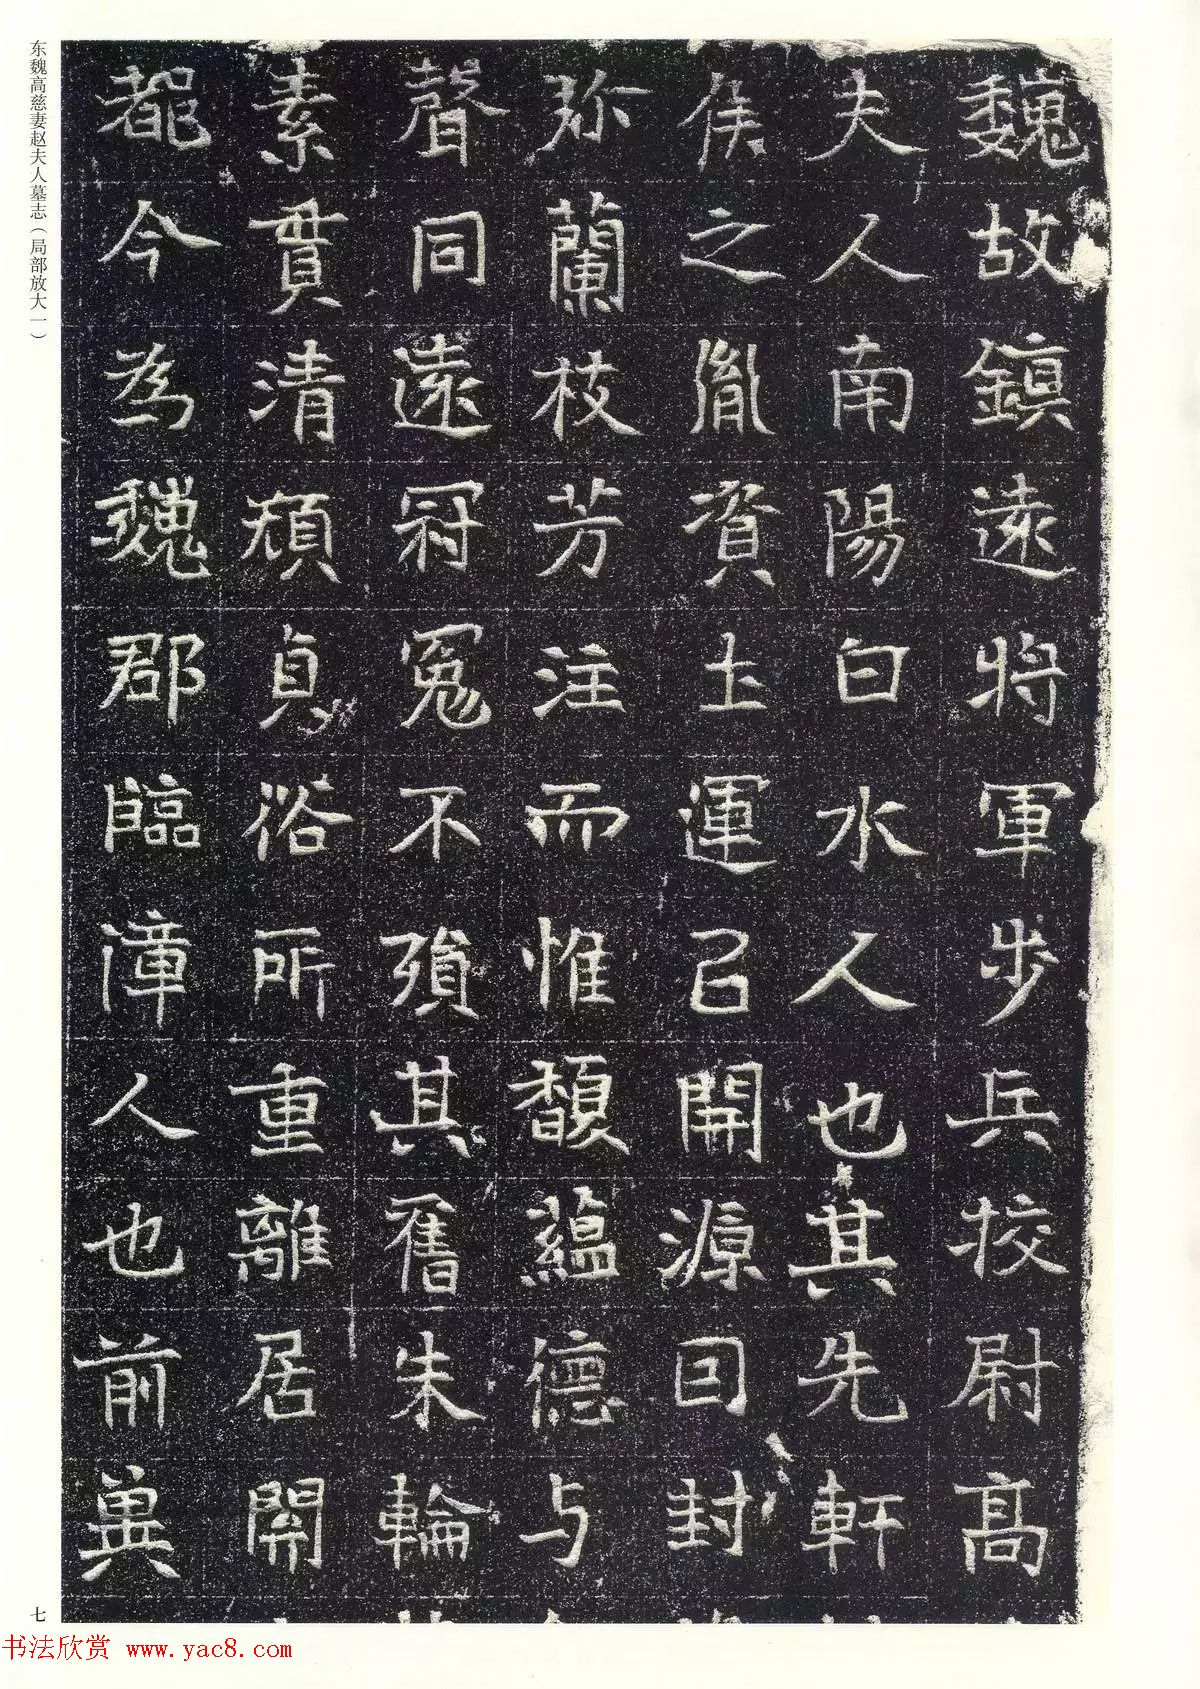 魏故鎮遠將軍步兵挍尉高
夫人南陽白水人也其先軒
侯之胤資土運已開源因封
弥蘭枝芳注而惟馥蘊德与
聲同遠冠冕不殞其舊朱輪
素貫清頏貞俗所重離居開
都今為魏郡臨漳人也前冀
东魏高慈妻赵夫人墓志（局部放大一）
七
书法欣赏 www.yac8.com